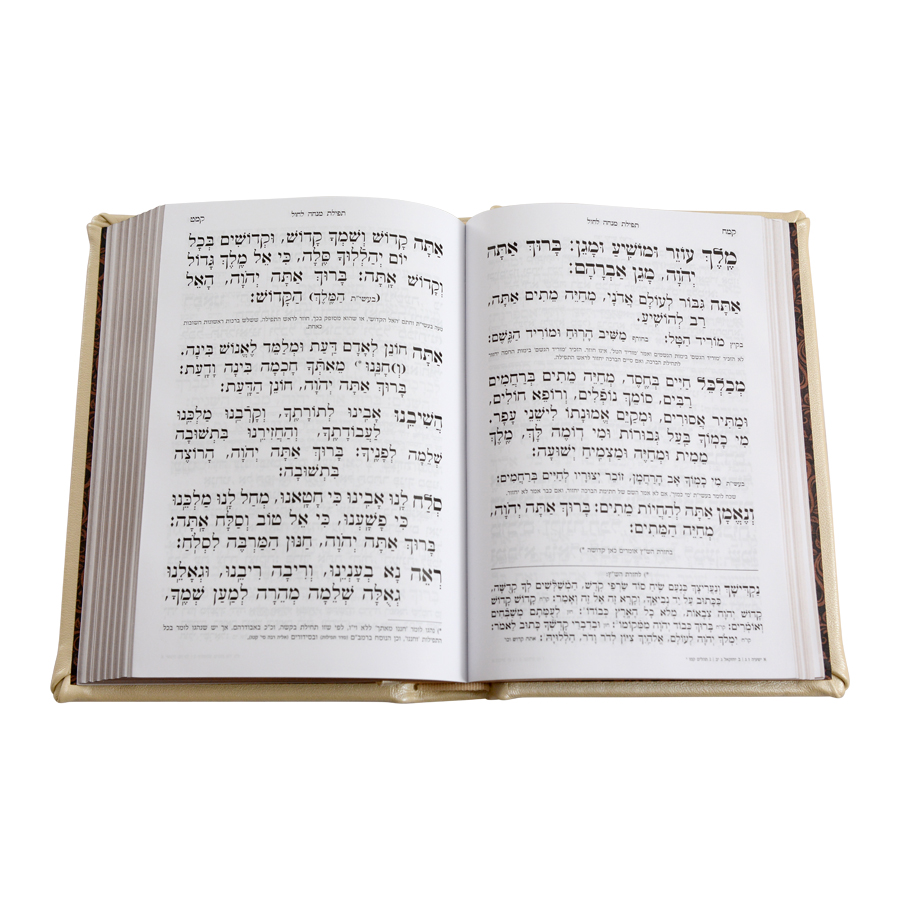 תפילת מנחה לחול
קמח
מֶלֶךְ עוֹזֵר וּמוֹשִׁיעַ וּמָגֵן: בָּרוּךְ אַתָּה
יְהֹוָה, מָגֵן אַבְרָהָם:
אַתָּה גִּבּוֹר לְעוֹלָם אֲדֹנָי, מְחַיֵּה מֵתִים אַתָּה,
רַב לְהוֹשִׁיעַ.
בקיץ מוֹרִיד הַטָּל: בחורף מַשִּׁיב הָרוּחַ וּמוֹרִיד הַגֶּשֶׁם:
מְכַלְכֵּל חַיִּים בְּחֶסֶד, מְחַיֵּה מֵתִים בְּרַחֲמִים
רַבִּים, סוֹמֵךְ נוֹפְלִים, וְרוֹפֵא חוֹלִים,
וּמַתִּיר אֲסוּרִים, וּמְקַיֵּם אֱמוּנָתוֹ לִישֵׁנֵי עָפָר,
מִי כָמוֹךָ בַּעַל גְּבוּרוֹת וּמִי דוֹמֶה לָּךְ, מֶלֶךְ
מֵמִית וּמְחַיֶּה וּמַצְמִיחַ יְשׁוּעָה:
בעשי״ת מִי כָמוֹךָ אַב הָרַחֲמָן, זוֹכֵר יְצוּרָיו לְחַיִּים בְּרַחֲמִים:
וְנֶאֱמָן אַתָּה לְהַחֲיוֹת מֵתִים: בָּרוּךְ אַתָּה יְהֹוָה,
מְחַיֵּה הַמֵּתִים:
בחזרת הש״ץ אומרים כאן קדושה *)
*) לחזרת הש״ץ:
נַקְדִּישָׁךְ וְנַעֲרִיצָךְ כְּנֹעַם שִׂיחַ סוֹד שַׂרְפֵי קֹדֶשׁ, הַמְשַׁלְּשִׁים לְךָ קְדֻשָּׁה,
כַּכָּתוּב עַל יַד נְבִיאֶךָ, וְקָרָא זֶה אֶל זֶה וְאָמַר: קו״ח קָדוֹשׁ קָדוֹשׁ
קָדוֹשׁ יְהֹוָה צְבָאוֹת, מְלֹא כָל הָאָרֶץ כְּבוֹדוֹ: חזן לְעֻמָּתָם מְשַׁבְּחִים
וְאוֹמְרִים: קו״ח בָּרוּךְ כְּבוֹד יְהֹוָה מִמְּקוֹמוֹ: חזן וּבְדִבְרֵי קָדְשְׁךָ כָּתוּב לֵאמֹר:
קו״ח יִמְלֹךְ יְהֹוָה לְעוֹלָם, אֱלֹהַיִךְ צִיּוֹן לְדֹר וָדֹר, הַלְלוּיָהּ:
תפילת מנחה לחול
קמט
אַתָּה קָדוֹשׁ וְשִׁמְךָ קָדוֹשׁ, וּקְדוֹשִׁים בְּכָל
יוֹם יְהַלְלוּךָ סֶּלָה, כִּי אֵל מֶלֶךְ גָּדוֹל
וְקָדוֹשׁ אָתָּה: בָּרוּךְ אַתָּה יְהֹוָה, הָאֵל
(בעשי״ת הַמֶּלֶךְ) הַקָּדוֹשׁ:
אַתָּה חוֹנֵן לְאָדָם דַּעַת וּמְלַמֵּד לֶאֱנוֹשׁ בִּינָה.
(וְ)חָנֵּנוּ *) מֵאִתְּךָ חָכְמָה בִּינָה וָדָעַת:
בָּרוּךְ אַתָּה יְהֹוָה, חוֹנֵן הַדָּעַת:
הֲשִׁיבֵנוּ אָבִינוּ לְתוֹרָתֶךָ, וְקָרְבֵנוּ מַלְכֵּנוּ
לַעֲבוֹדָתֶךָ, וְהַחֲזִירֵנוּ בִּתְשׁוּבָה
שְׁלֵמָה לְפָנֶיךָ: בָּרוּךְ אַתָּה יְהֹוָה, הָרוֹצֶה
בִּתְשׁוּבָה:
סְלַח לָנוּ אָבִינוּ כִּי חָטָאנוּ, מְחַל לָנוּ מַלְכֵּנוּ
כִּי פָשָׁעְנוּ, כִּי אֵל טוֹב וְסַלָּח אָתָּה:
בָּרוּךְ אַתָּה יְהֹוָה, חַנּוּן הַמַּרְבֶּה לִסְלֹחַ:
רְאֵה נָא בְעָנְיֵנוּ, וְרִיבָה רִיבֵנוּ, וּגְאָלֵנוּ
גְאֻלָּה שְׁלֵמָה מְהֵרָה לְמַעַן שְׁמֶךָ,